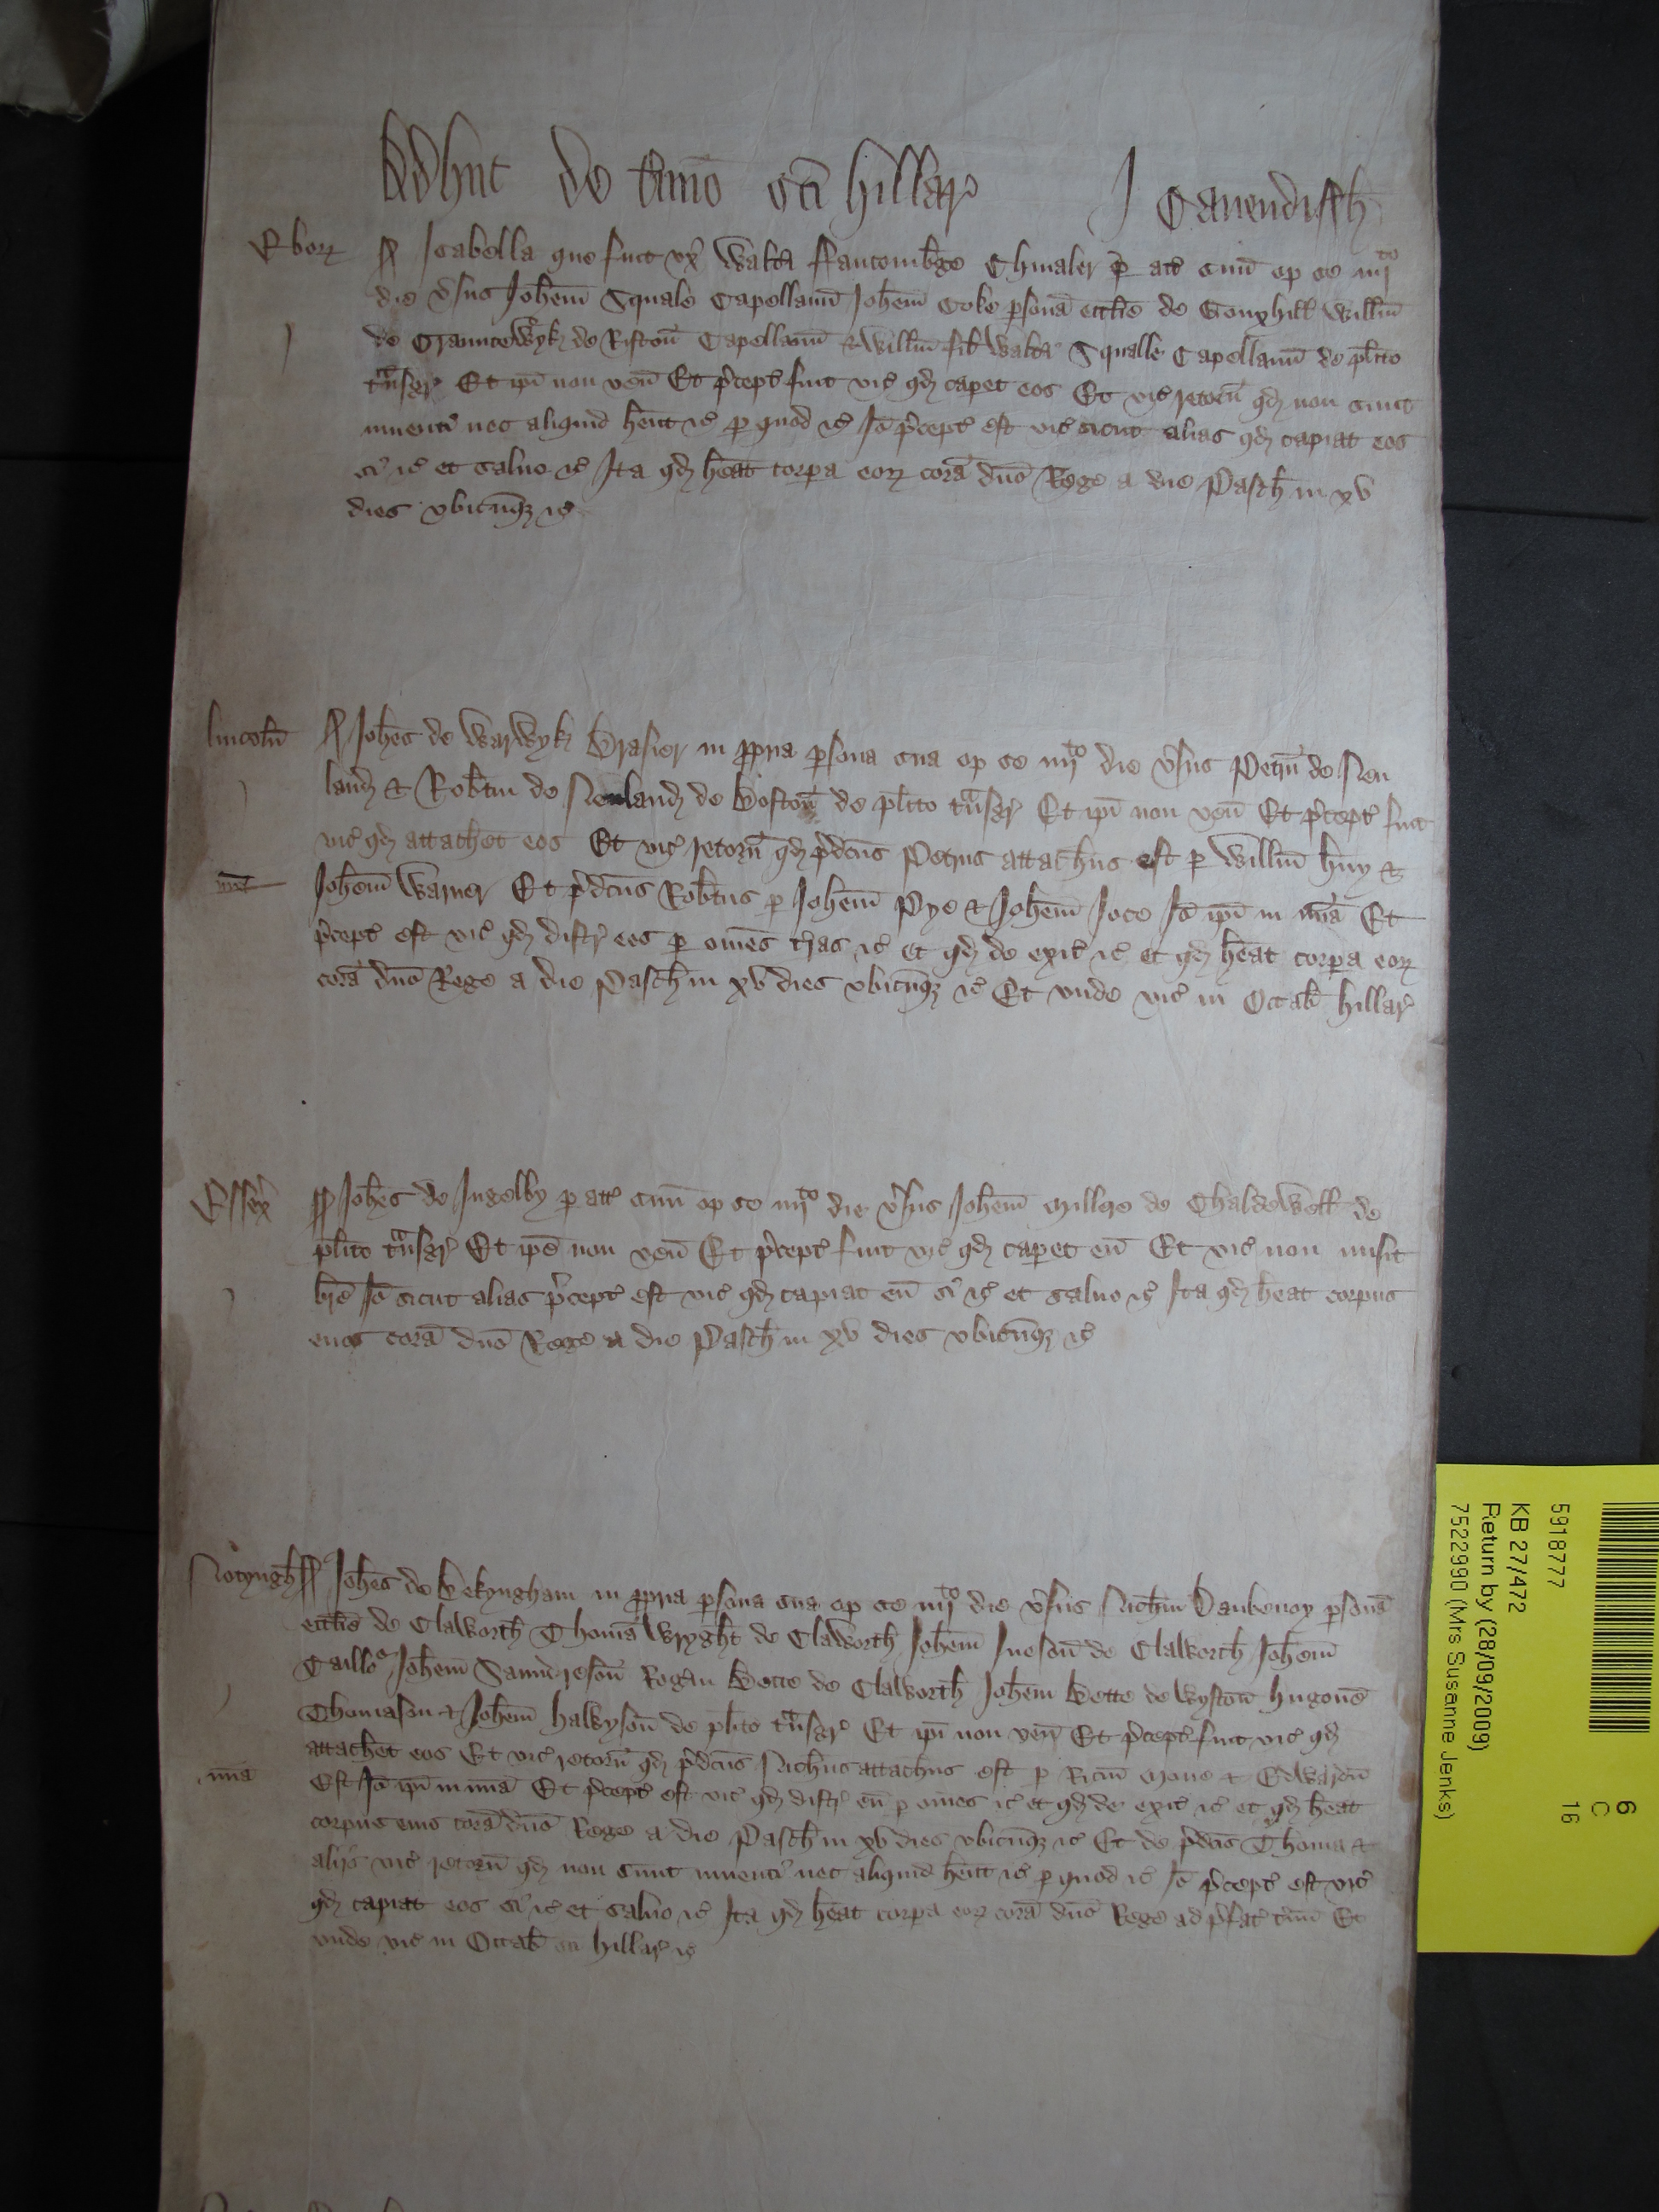 Adhuc de t'mino sc̄i Hillar'
J Cavendissh
Ebor'
ss Isabella que fuit vx' Walt'i ffauconb'ge Chiualer p̱ att' suū op̱ se iiijto
die v'sus Joh̄em Squale Capellanū Joh̄em Coke p̱sonā eccl̄ie de Gouxhill Will̄m
de Crauncewyk de Ristoū Capellanū & Will̄m fil' Walt'i Squalle Capellanū de pl̄ito
t'nsgr' Et ip̄i non veū Et p'cept' fuit vic' qd' cap̱et eos Et vic' retorū qd' non sunt
inuenti nec aliquid h̄ent &c p̱ quod &c Iō p'cept' est vic' sicut alias qd' capiat eos
si &c et saluo &c Ita qd' h̄eat corp̱a eor' corā dn̄o Rege a die Pasch' in xv
dies vbicūq' &c
Lincoln̄
ss Joh̄es de Warwyk Brasier in p̱p̱ria p̱sona sua op̱ se iiijto die v'sus Petrū de Neu
land' & Rob̄tm de Neuland' de Bostoū de pl̄ito t'nsgr' Et ip̄i non veū Et p'cept' fuit
vic' qd' attach̄et eos Et vic' retorū qd' p'dc̄us Petrus attach̄us est p̱ Will̄m Huy &
Joh̄em Warner Et p'dc̄us Rob̄tus p̱ Joh̄em Pye & Joh̄em Joce Iō ip̄i in mīa Et
mīa
p'cept' est vic' qd' distr' eos p̱ om̄es t'ras &c et qd' de exit' &c et qd' h̄eat corp̱a eor'
corā dn̄o Rege a die Pasch' in xv dies vbicūq' &c Et vnde vic' in Octab' Hillar'
Essex'
ss Joh̄es de Ingelby p̱ att' suū op̱ se iiijto die v'sus Joh̄em Mill'e de Chaldewell de
pl̄ito t'nsgr' Et ip̄e non veū Et p'cept' fuit vic' qd' cap̱et eū Et vic' non misit
br̄e Iō sicut alias p'cept' est vic' qd' capiat eū si &c et saluo &c Ita qd' h̄eat corpus
eius corā dn̄o Rege a die Pasch' in xv dies vbicūq' &c
Notyngh'
ss Joh̄es de Bekyngham in p̱p̱ria p̱sona sua op̱ se iiijto die v'sus Nich̄m Daubeney p̱sonā
eccl̄ie de Claworth' Thomā Wryght' de Claworth' Joh̄em Iuesoū de Claworth' Joh̄em
Taillo'r Joh̄em Saund'resoū Rog'm Bette de Claworth' Joh̄em Bette de Wystoū Hugonē
Thomasin & Joh̄em Halkysoū de pl̄ito t'nsgr' Et ip̄i non veū Et p'cept' fuit vic' qd'
attach̄et eos Et vic' retorū qd' p'dc̄us Nich̄us attach̄us est p̱ Ric̄m Mone & Edwardū
mīa
Est Iō ip̄i in mīa Et p'cept' est vic' qd' distr' eū p̱ om̄es &c et qd' de exit' &c et qd' h̄eat
corpus eius corā dn̄o Rege a die Pasch' in xv dies vbicūq' &c Et de p'dc̄is Thoma &
alijs vic' retorū qd' non sunt inuenti nec aliquid h̄ent &c p̱ quod &c Iō p'cept' est vic'
qd' capiat eos si &c et saluo &c Ita qd' h̄eat corp̱a eor' corā dn̄o Rege ad p'fat' t'm̄ Et
vnde vic' in Octab' sc̄i Hillar' &c
5918777
KB 27/472
Return by (28/09/2009)
7522990 (Mrs Susanne Jenks)
6
C
16